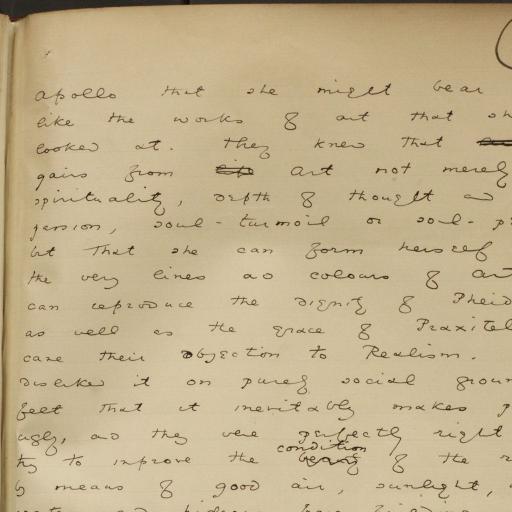 Apollo that she might bear
like the works of art that sh
looked at. They knew that
gains from life art not merely
spirituality, depth of thought and
passion, soul-turmoil or soul-p
but that she can form herself
the very lines and colours of art
can reproduce the dignity of Pheid
as well as the grace of Praxitel
came their objection to Realism.
disliked it on purely social groun
felt that it inevitably makes p
ugly, and they were perfectly right
try to improve the condition of the r
by means of good air, sunlight,